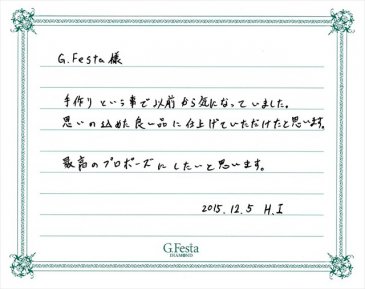 G.Festa様
手作りという事で以前から気になっていました。
思いの込めた良い品に仕上げていただけたと思います。
最高のプロポーズにしたいと思います。
2015.12.5 H.I
G.Festa
DIAMOND